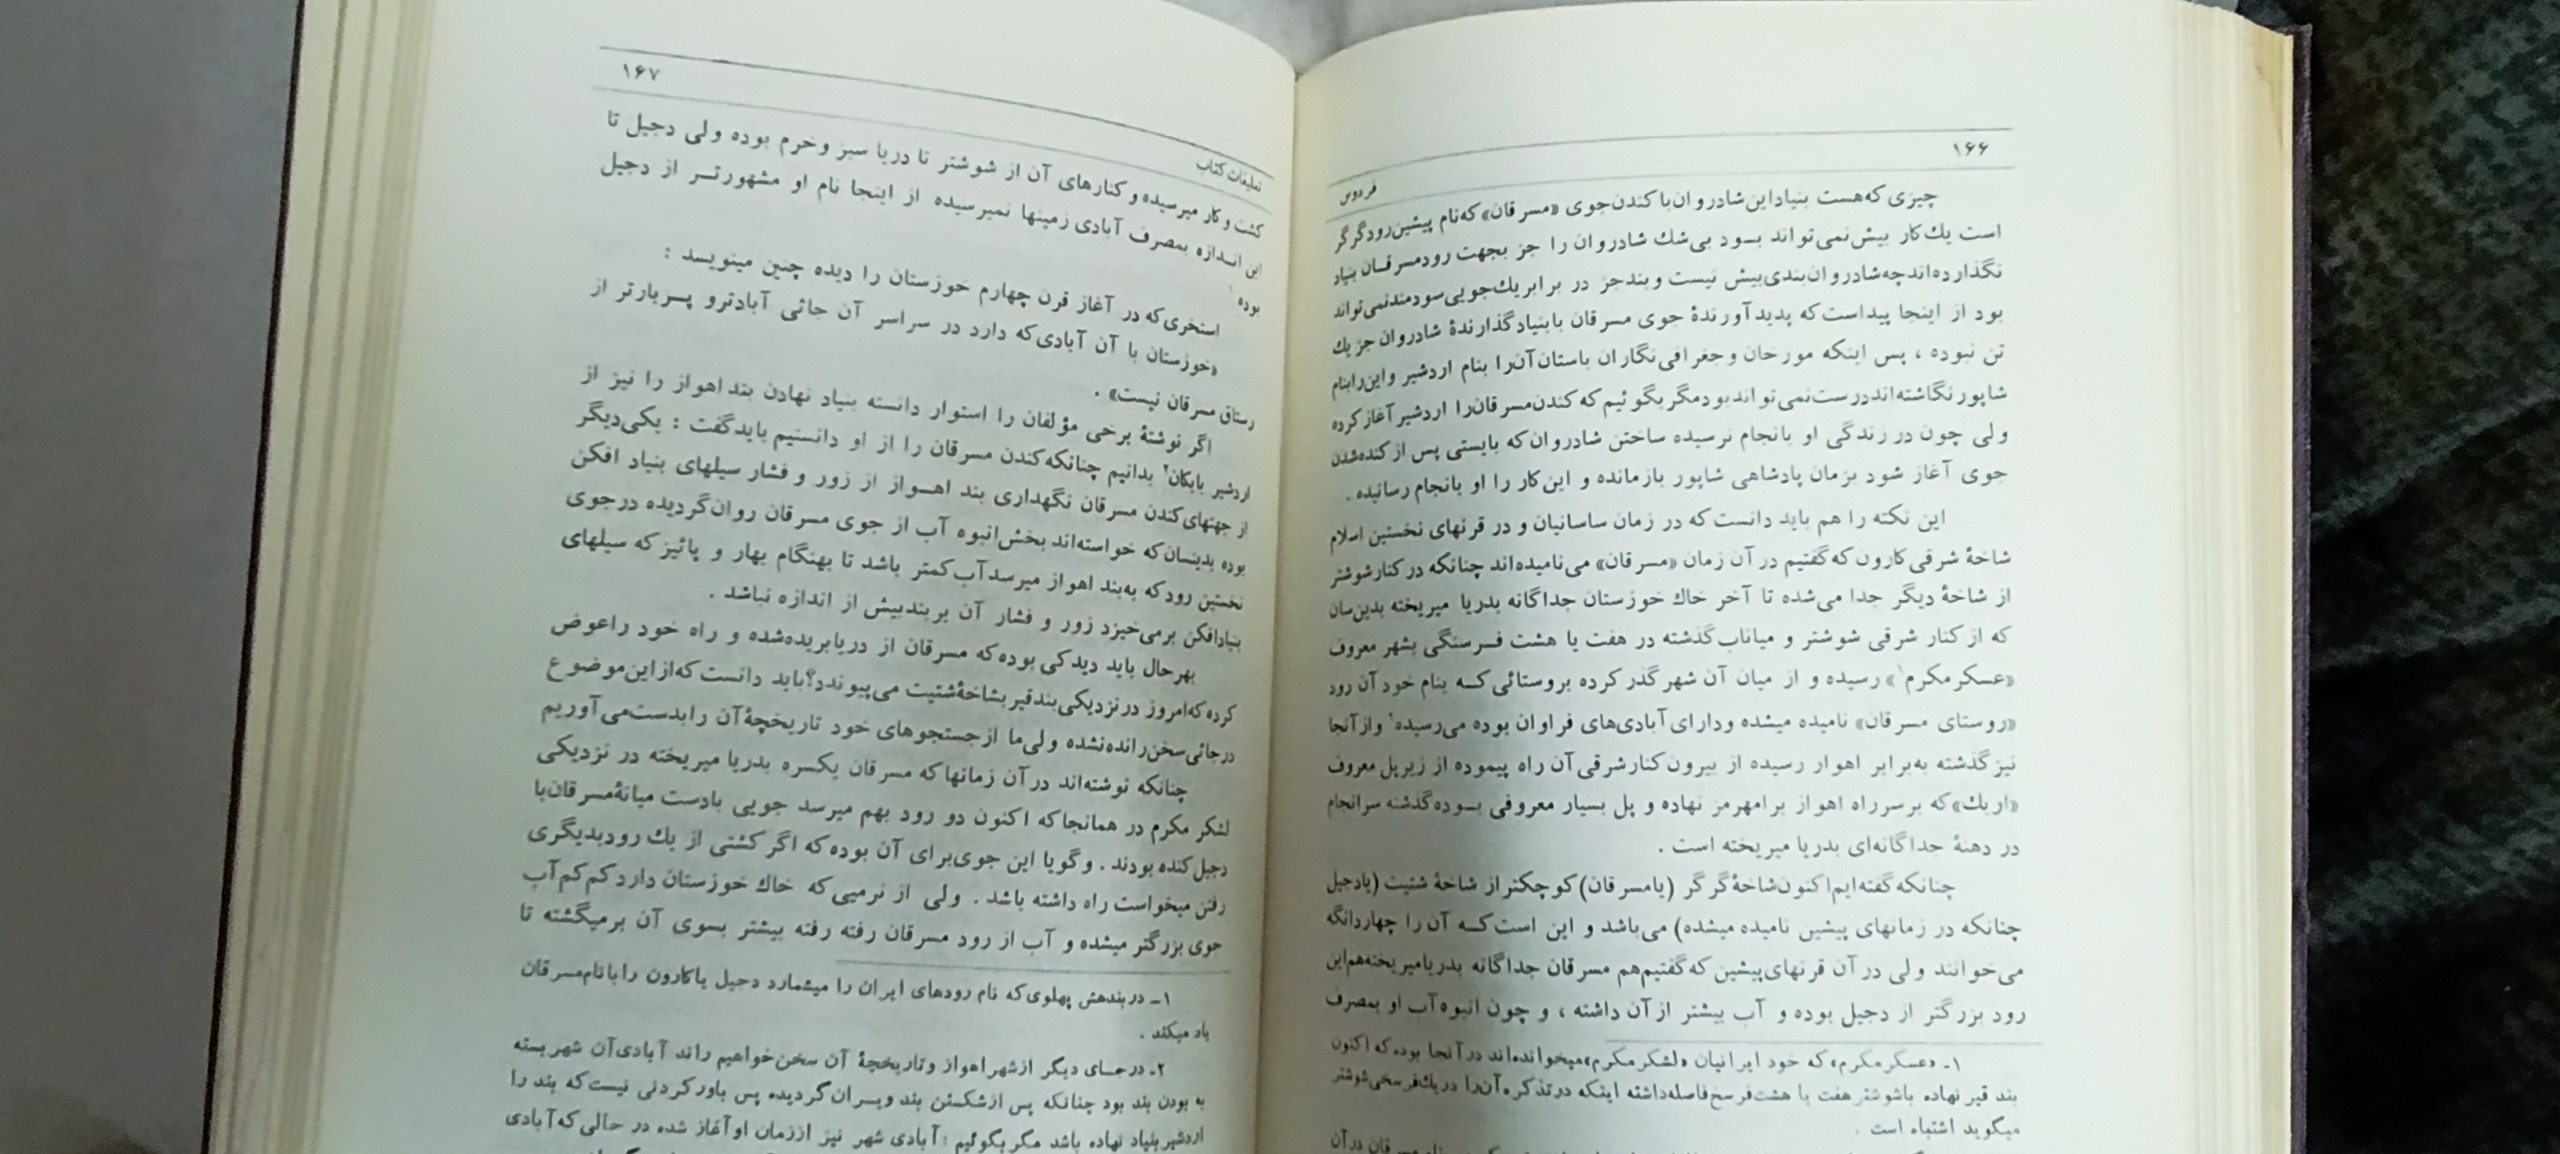 ۱۶۶
فردوس
چیزی که هست بنیاد این شادروان با کندن جوی «مسرقان» که نام پیشین رود گرگر
است یك کار بیش نمی‌تواند بـود بی‌شك شادروان را جز بجهت رود مسرقـان بنیاد
نگذارده‌اند چه شادروان بندی بیش نیست و بند جز در برابر یك جویی سودمند نمی‌تواند
بود از اینجا پیداست که پدید آورندهٔ جوی مسرقان با بنیاد گذارندهٔ شادروان جز یك
تن نبوده ، پس اینکه مورخان و جغرافی نگاران باستان آن را بنام اردشیر و این را بنام
شاپور نگاشته‌اند درست نمی‌تواند بود مگر بگوئیم که کندن مسرقان را اردشیر آغاز کرده
ولی چون در زندگی او بانجام نرسیده ساختن شادروان که بایستی پس از کنده شدن
جوی آغاز شود بزمان پادشاهی شاپور بازمانده و این کار را او بانجام رسانیده .
این نکته را هم باید دانست که در زمان ساسانیان و در قرنهای نخستین اسلام
شاخهٔ شرقی کارون که گفتیم در آن زمان «مسرقان» می‌نامیده‌اند چنانکه در کنار شوشتر
از شاخهٔ دیگر جدا می‌شده تا آخر خاك خوزستان جداگانه بدریا میریخته بدین‌سان
که از کنار شرقی شوشتر و میاناب گذشته در هفت یا هشت فـرسنگی بشهر معروف
«عسکر مکرم۱» رسیده و از میان آن شهر گذر کرده بروستائی کـه بنام خود آن رود
«روستای مسرقان» نامیده میشده ودارای آبادی‌های فراوان بوده می‌رسیده۲ واز آنجا
نیز گذشته به‌برابر اهواز رسیده از بیرون کنار شرقی آن راه پیموده از زیر پل معروف
«اربك» که بر سر راه اهواز برامهرمز نهاده و پل بسیار معروفی بـوده گذشته سرانجام
در دهنهٔ جداگانه‌ای بدریا میریخته است .
چنانکه گفته‌ایم اکنون شاخهٔ گرگر (یا مسرقان) کوچکتر از شاخهٔ شتیت (یا دجیل
چنانکه در زمانهای پیشین نامیده میشده) می‌باشد و این است کـه آن را چهاردانگه
می‌خوانند ولی در آن قرنهای پیشین که گفتیم هم مسرقان جداگانه بدریا میریخته هم این
رود بزرگتر از دجیل بوده و آب بیشتر از آن داشته ، و چون انبوه آب او بمصرف
۱ـ «عسکر مکرم» که خود ایرانیان «لشکر مکرم» میخوانده‌اند در آنجا بوده که اکنون
بند قیر نهاده با شوشتر هفت یا هشت فرسخ فاصله داشته اینکه در تذکره آن را در یك فرسخی شوشتر
میگوید اشتباه است .
مسرقان در آن
۱۶۷
تعلیقات کتاب
کشت و کار میرسیده و کنارهای آن از شوشتر تا دریا سبز وخرم بوده ولی دجیل تا
این انـدازه بمصرف آبادی زمینها نمیرسیده از اینجا نام او مشهورتـر از دجیل
بوده ۱
استخری که در آغاز قرن چهارم خوزستان را دیده چنین مینویسد :
«خوزستان با آن آبادی که دارد در سراسر آن جائی آبادترو پـربارتر از
رستاق مسرقان نیست» .
اگر نوشتهٔ برخی مؤلفان را استوار دانسته بنیاد نهادن بند اهواز را نیز از
اردشیر بابکان۲ بدانیم چنانکه کندن مسرقان را از او دانستیم باید گفت : یکی دیگر
از جهتهای کندن مسرقان نگهداری بند اهـواز از زور و فشار سیلهای بنیاد افکن
بوده بدینسان که خواسته‌اند بخش انبوه آب از جوی مسرقان روان گردیده در جوی
نخستین رود که به‌بند اهواز میرسد آب کمتر باشد تا بهنگام بهار و پائیز که سیلهای
بنیادافکن برمی‌خیزد زور و فشار آن بربند بیش از اندازه نباشد .
بهرحال باید دید کی بوده که مسرقان از دریا بریده‌شده و راه خود راعوض
کرده که امروز در نزدیکی بند قیر بشاخهٔ شتیت می‌پیوندد؟ باید دانست که از این موضوع
در جائی سخن رانده نشده ولی ما از جستجوهای خود تاریخچهٔ آن را بدست می‌آوریم
چنانکه نوشته‌اند در آن زمانها که مسرقان یکسره بدریا میریخته در نزدیکی
لشکر مکرم در همانجا که اکنون دو رود بهم میرسد جویی بادست میانهٔ مسرقان با
دجیل کنده بودند . و گویا این جوی برای آن بوده که اگر کشتی از یك رود بدیگری
رفتن میخواست راه داشته باشد . ولی از نرمیی که خاك خوزستان دارد کم کم آب
جوی بزرگتر میشده و آب از رود مسرقان رفته رفته بیشتر بسوی آن برمیگشته تا
۱ـ در بندهش پهلوی که نام رودهای ایران را میشمارد دجیل یا کارون را با نام مسرقان
یاد میکند .
۲ـ در جـای دیگر از شهر اهواز و تاریخچهٔ آن سخن خواهیم راند آبادی آن شهر بسته
به بودن بند بود چنانکه پس از شکستن بند ویـران گردیده پس باور کردنی نیست که بند را
اردشیر بنیاد نهاده باشد مگر بگوئیم : آبادی شهر نیز از زمان او آغاز شده در حالی که آبادی